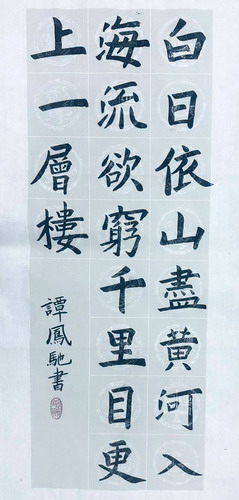 白日依山盡黃河入
海流欲窮千里目更
上一層樓
譚鳳馳書